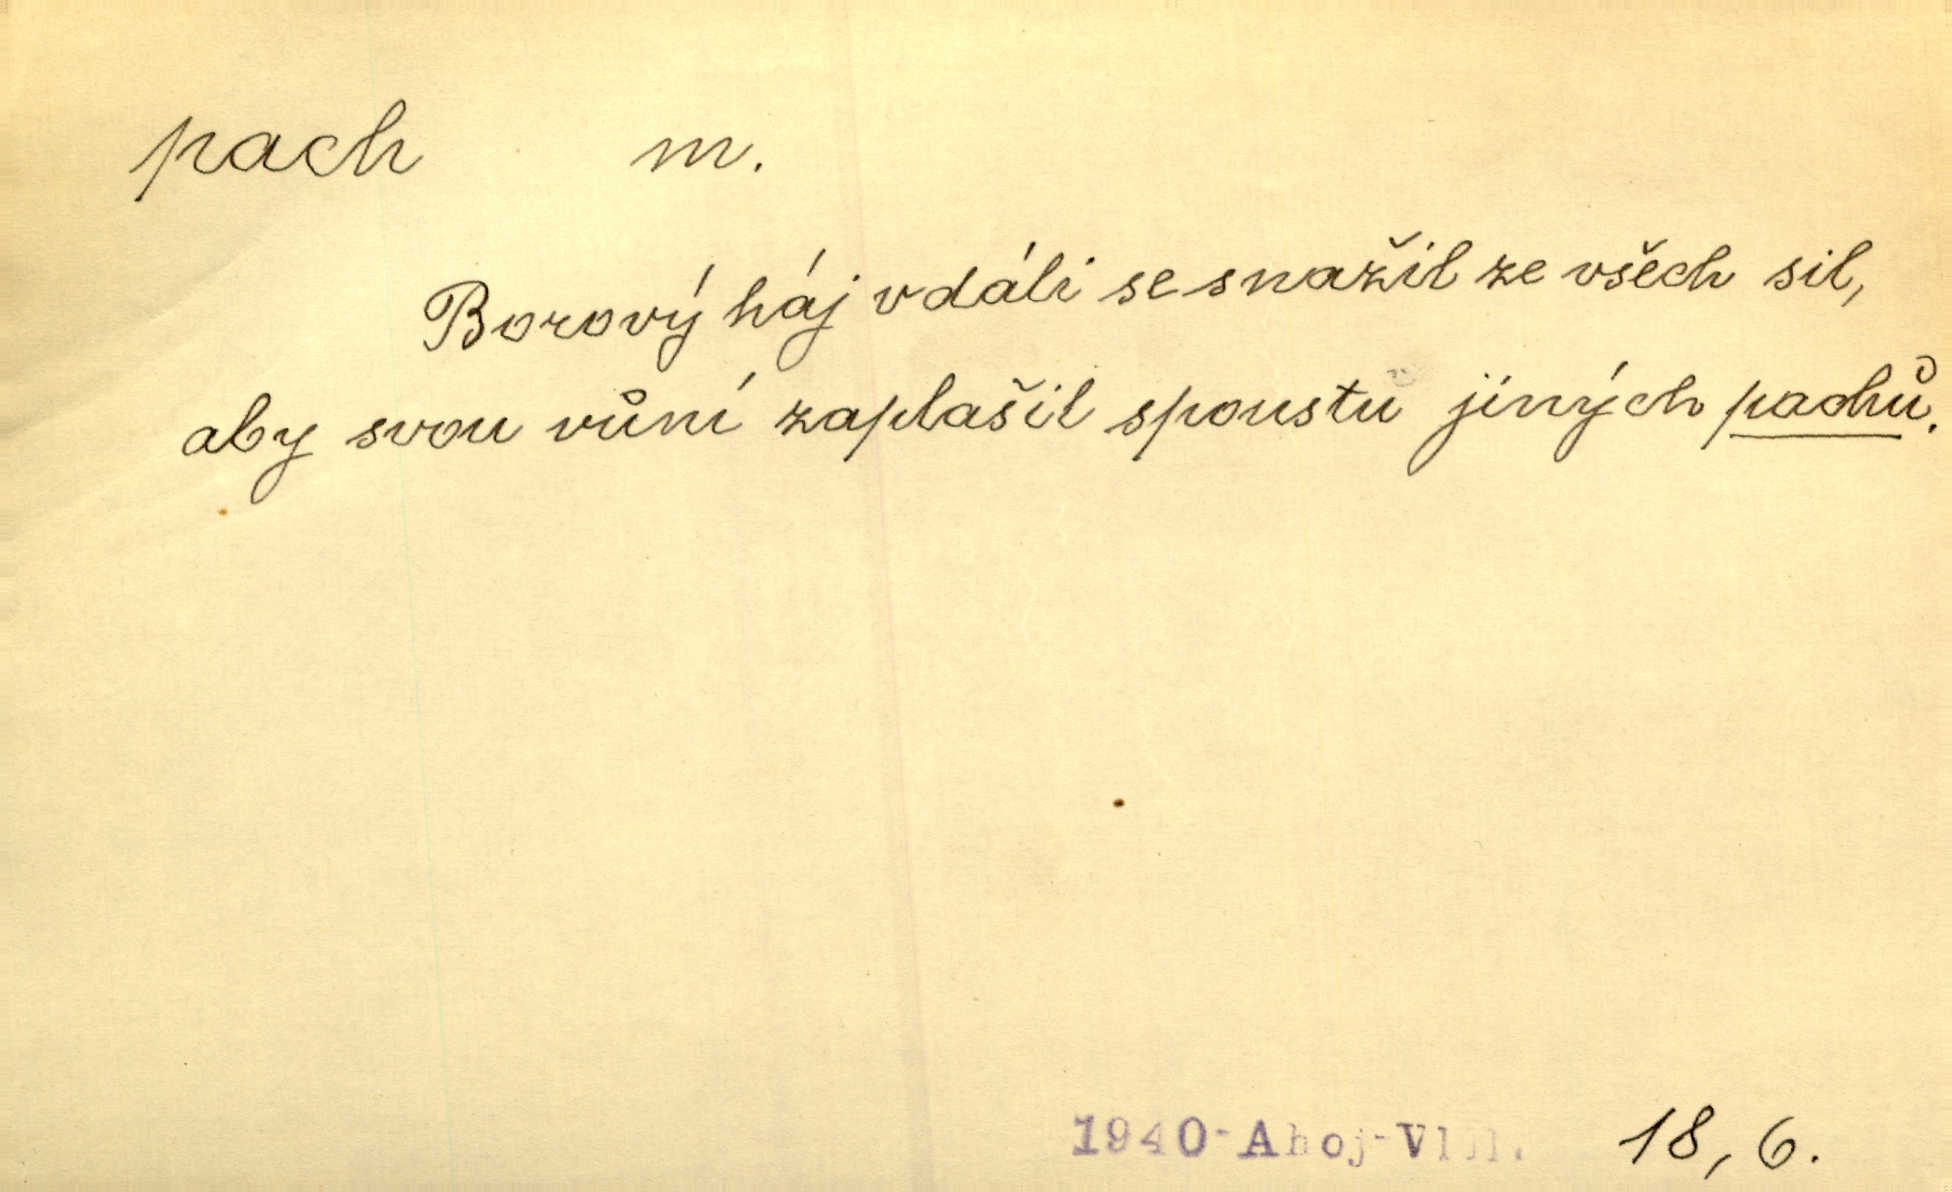 pach m.
Borový háj v dáli se snažil ze všech sil,
aby svou vůní zaplašil spoustu jiných pachů.
1940-Ahoj-VIII. 18, 6.